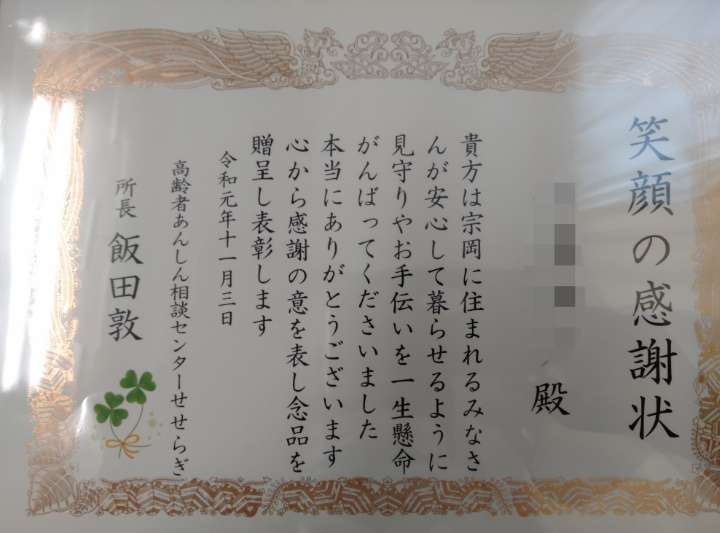 笑顔の感謝状
殿
貴方は宗岡に住まれるみなさ
んが安心して暮らせるように
見守りやお手伝いを一生懸命
がんばってくださいました
本当にありがとうございます
心から感謝の意を表し念品を
贈呈し表彰します
令和元年十一月三日
高齢者あんしん相談センターせせらぎ
所長 飯田敦